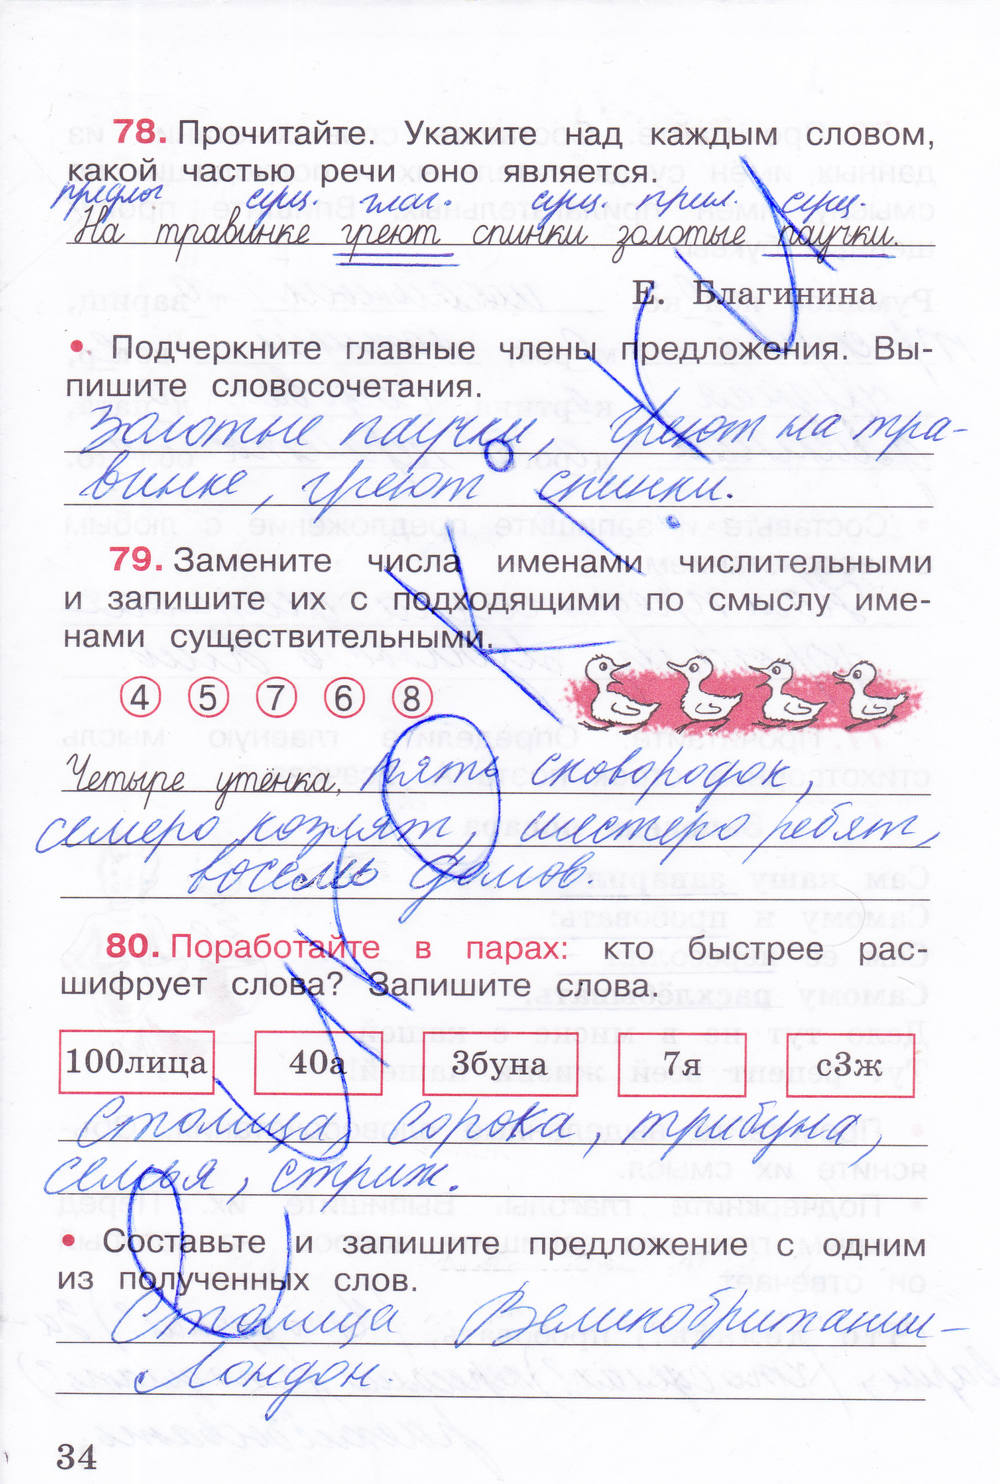 78. Прочитайте. Укажите над каждым словом,
какой частью речи оно является.
предлог сущ. глаг. сущ. прил. сущ.
На травинке греют спинки золотые паучки.
Е. Благинина
• Подчеркните главные члены предложения. Вы-
пишите словосочетания.
Золотые паучки, греют на тра-
винке, греют спинки.
79. Замените числа именами числительными
и запишите их с подходящими по смыслу име-
нами существительными.
4 5 7 6 8
Четыре утёнка, пять сковородок,
семеро козлят, шестеро ребят,
восемь домов.
80. Поработайте в парах: кто быстрее рас-
шифрует слова? Запишите слова.
100лица 40а 3буна 7я с3ж
Столица, сорока, трибуна,
семья, стриж.
• Составьте и запишите предложение с одним
из полученных слов.
Столица Великобритании-
Лондон.
34